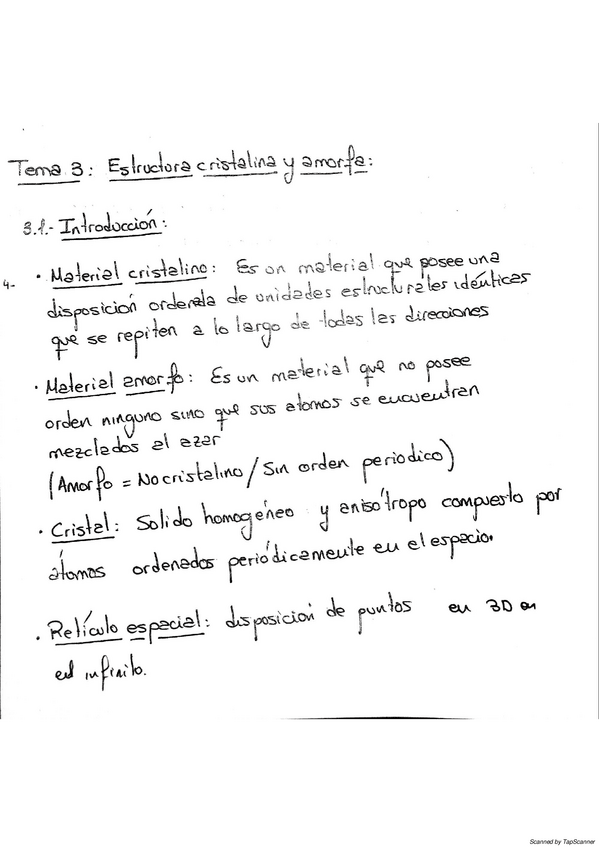 Tema 3: Estructura cristalina y amorfa:
3.1.- Introducción:
4- · Material cristalino: Es un material que posee una
disposición ordenada de unidades estructurales idénticas
que se repiten a lo largo de todas las direcciones
· Material amorfo: Es un material que no posee
orden ninguno sino que sus atomos se encuentran
mezclados al azar
(Amorfo = No cristalino / Sin orden periodico)
· Cristal: Solido homogéneo y anisótropo compuesto por
átomos ordenados periódicamente en el espacio.
· Retículo espacial: disposición de puntos en 3D en
el infinito.
Scanned by TapScanner